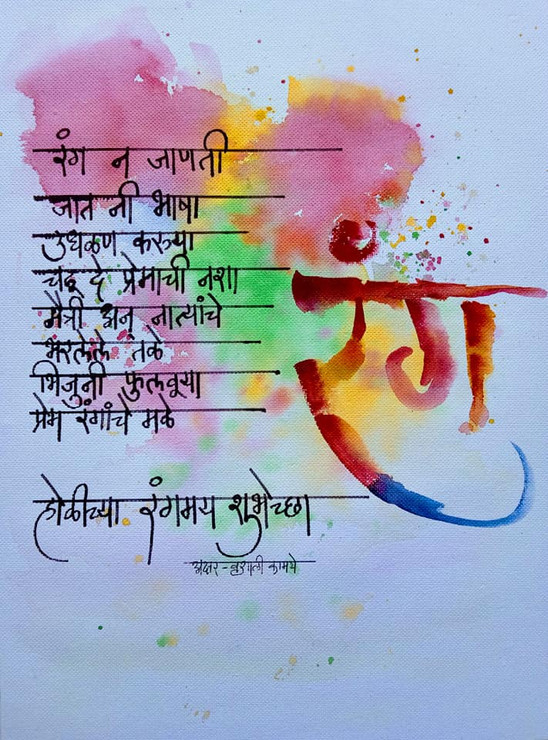 रंग न जाणती
जात नी भाषा
उधळण करूया
चढू दे प्रेमाची नशा
मैत्री अन् नात्यांचे
भरलेले तळे
भिजुनी फुलवूया
प्रेम रंगांचे मळे
रंग
होळीच्या रंगमय शुभेच्छा
अक्षर - वृषाली कामथे